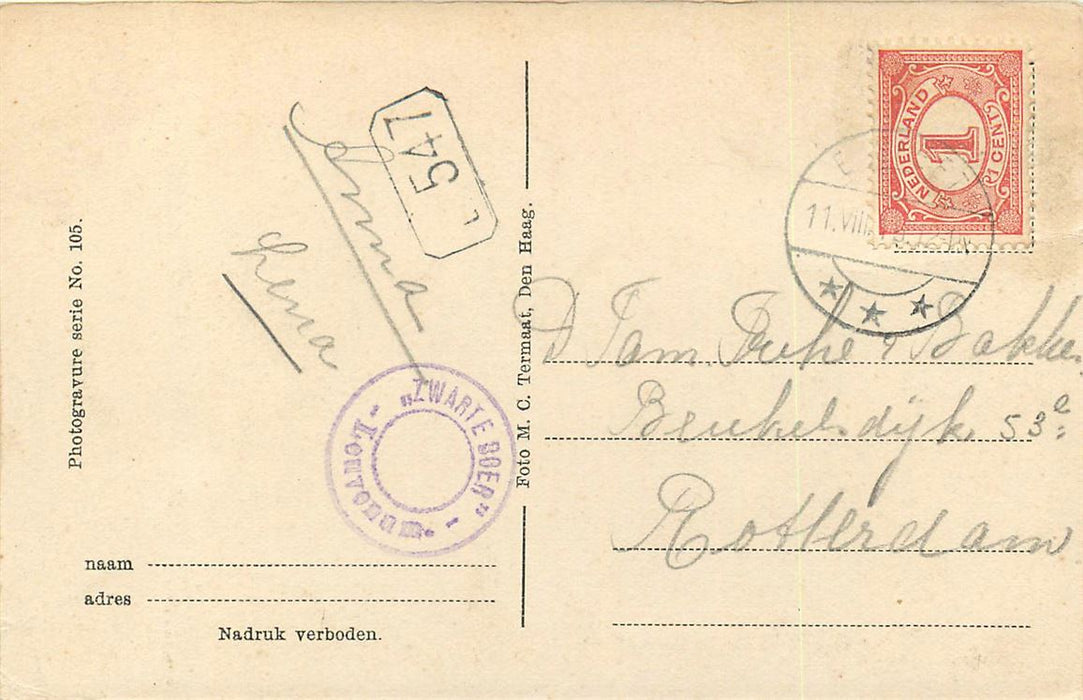 NEDERLAND
1
1 CENT
11.VIII
L 547
Anna
Lena
Photogravure serie No. 105.
Foto M. C. Termaat, Den Haag.
„ZWARTE BOER”
- Leuvenum -
Fam
Bakker
Beukelsdijk 53
Rotterdam
naam
adres
Nadruk verboden.